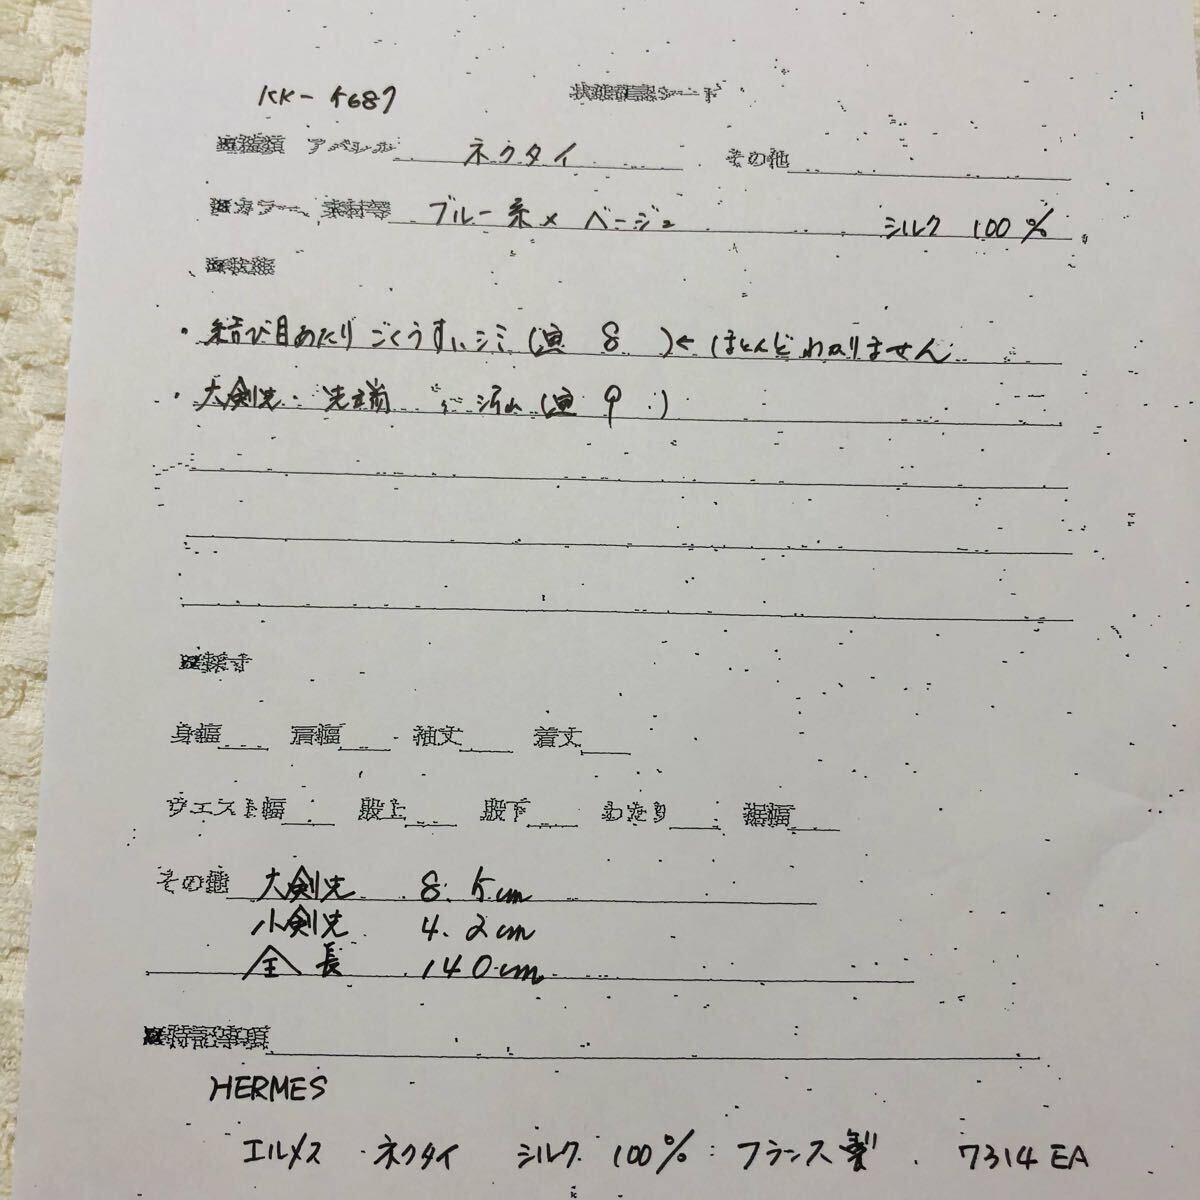 KK-5687
状態確認シート
■種類 アパレル ネクタイ その他
■カラー、素材等 ブルー系×ベージュ シルク 100%
■状態
・結び目あたり ごくうすいシミ(画 8 )←ほとんどわかりません
・大剣先・先端 (画 9 )
■採寸
身幅 肩幅 袖丈 着丈
ウエスト幅 股上 股下 わたり 裾幅
その他 大剣先 8.5cm
小剣先 4.2cm
全長 140cm
■特記事項
HERMES
エルメス ネクタイ シルク 100% フランス製 7314 EA